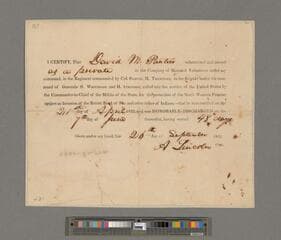 I CERTIFY, That David M. Pantier volunteered and served
as a private in the Company of Mounted Volunteers under my
command, in the Regiment commanded by Col. SAMUEL M. THOMPSON, in the Brigade under the com-
mand of Generals S. WHITESIDE and H. ATKINSON, called into the service of the United States by
the Commander-in-Chief of the Militia of the State, for the protection of the North Western Frontier
against an Invasion of the British Band of Sac and other tribes of Indians,—that he was enrolled on the
21st day of April and was HONORABLY DISCHARGED on the
7th day of June thereafter, having served 48 days
Given under my hand, this 26th day of September
A Lincoln